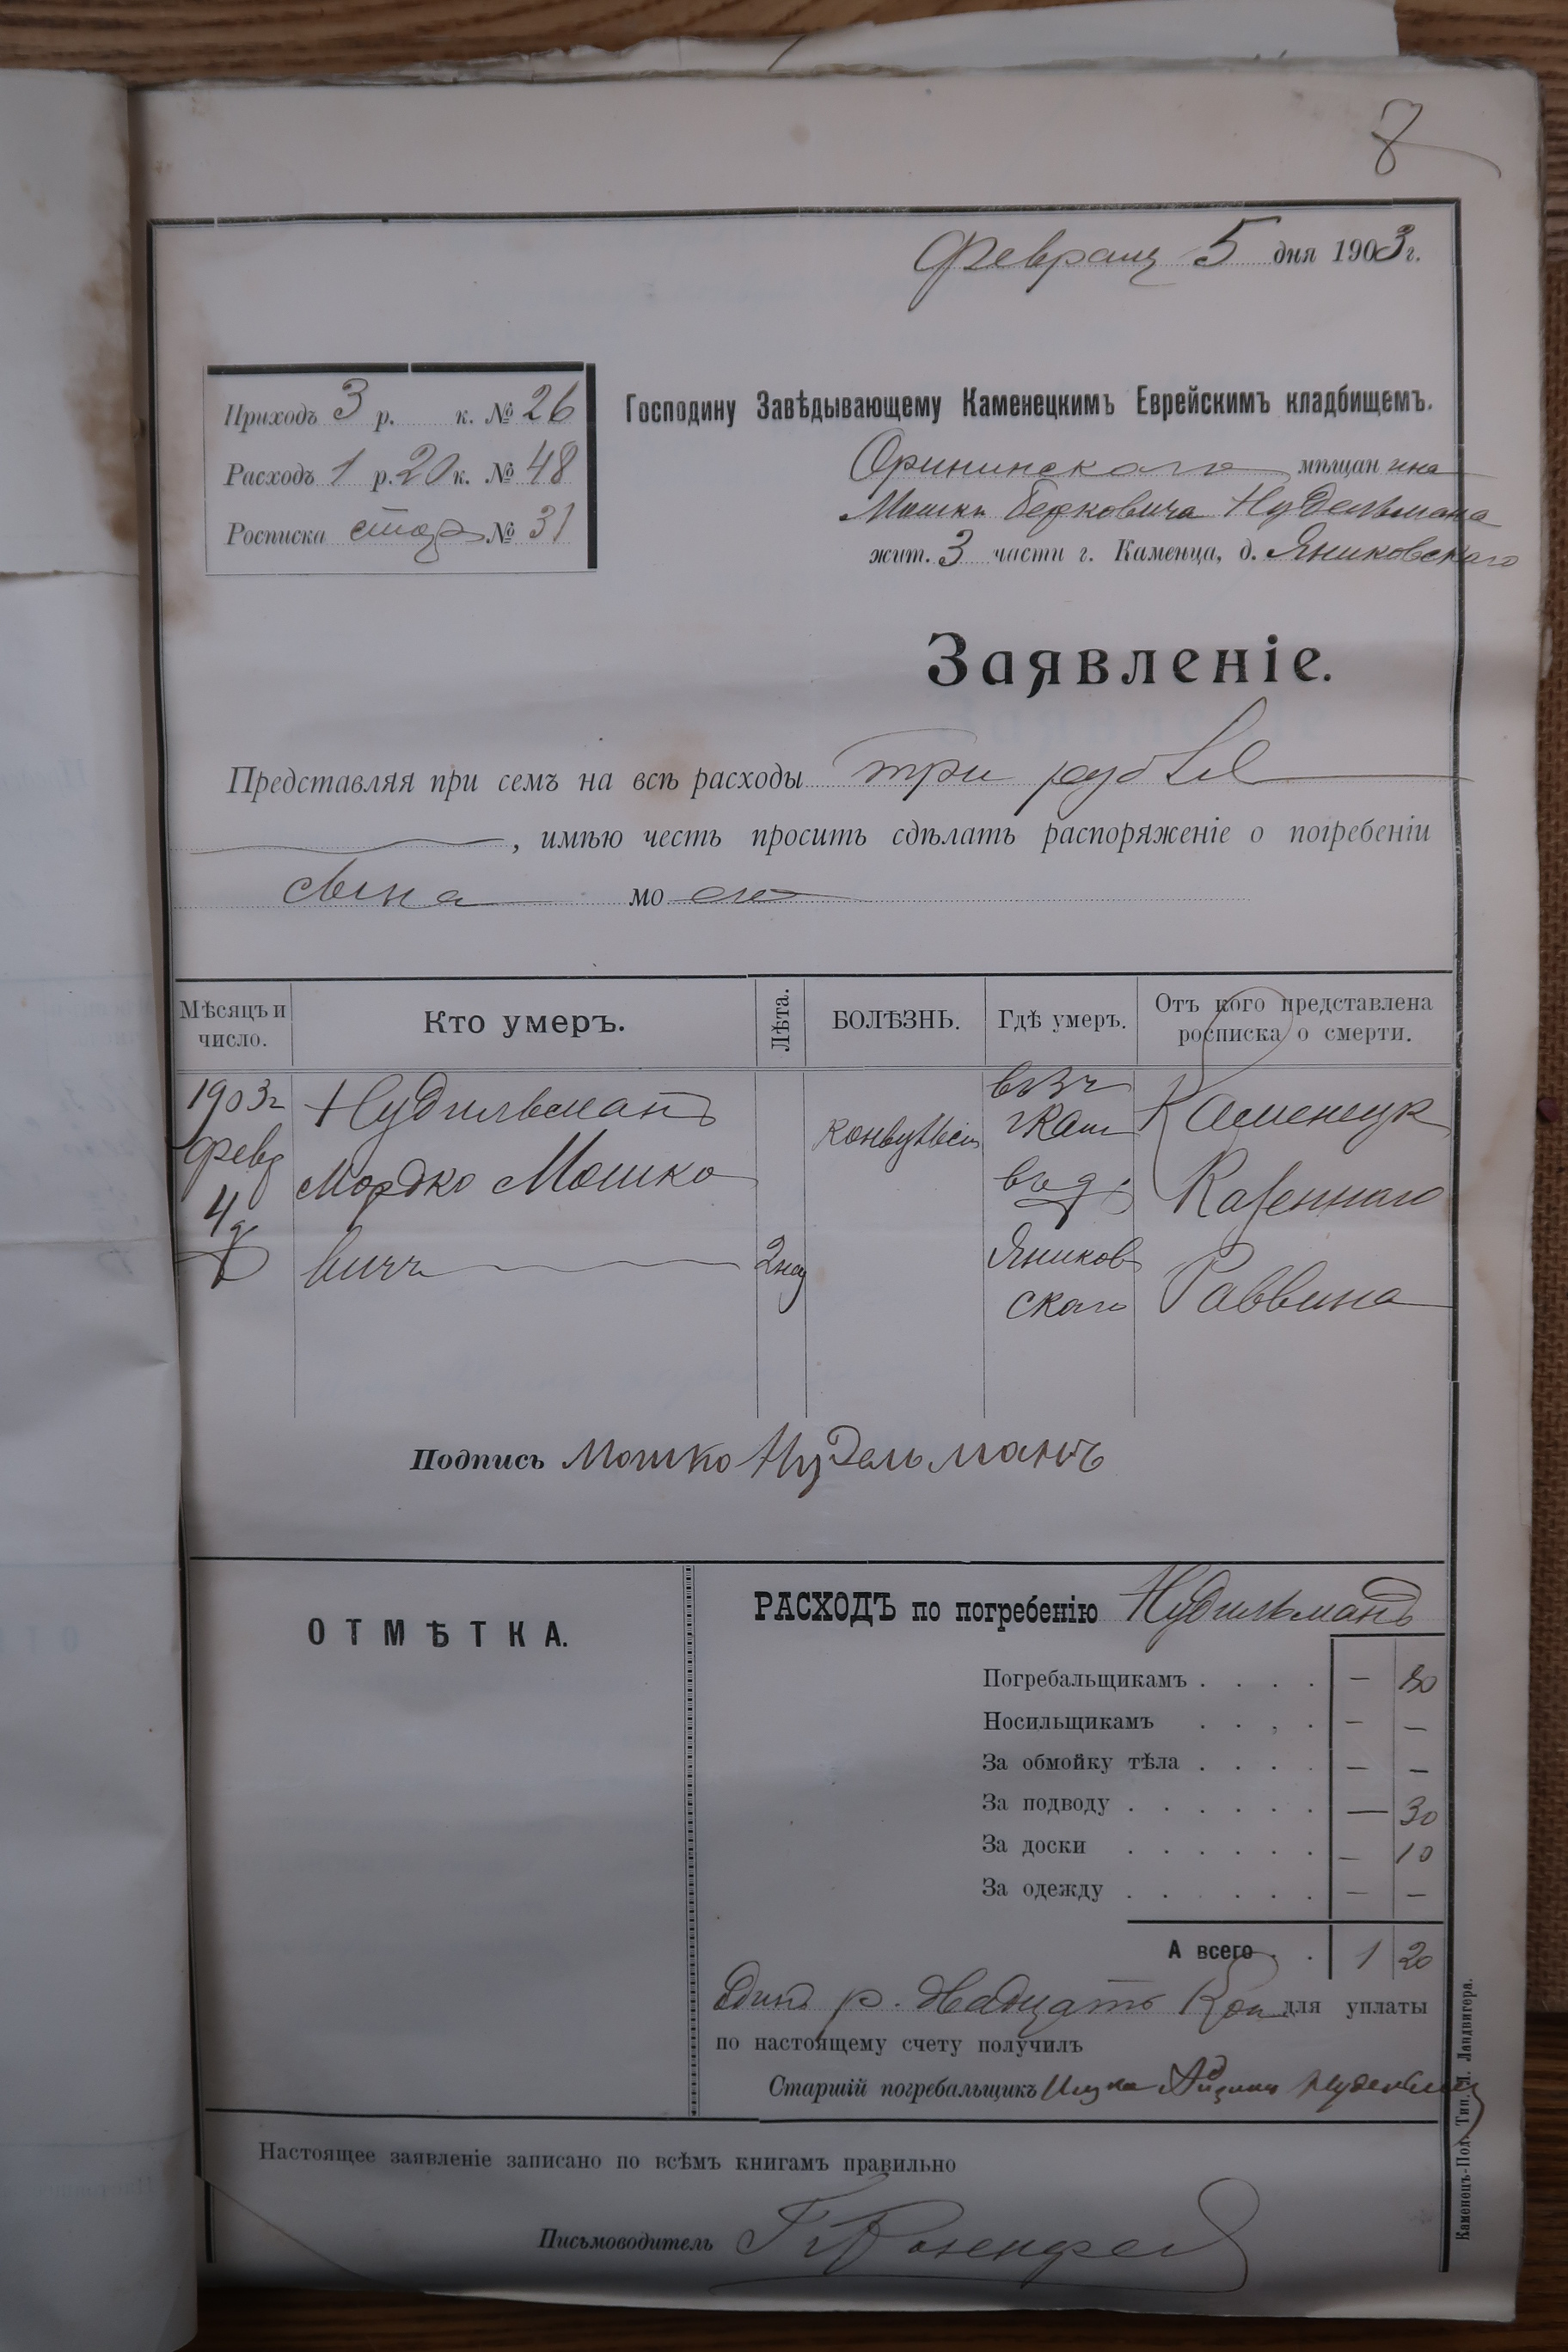 8
Февраля 5 дня 1903 г.
Приходъ 3 р. к. № 26
Расходъ 1 р. 20 к. № 48
Росписка стар № 31
Господину Завѣдывающему Каменецкимъ Еврейскимъ кладбищемъ.
Орининскаго мѣщанина
Мошка Берковича Нудельмана
жит. 3 части г. Каменца, д. Яниковскаго
Заявленіе.
Представляя при семъ на всѣ расходы три рубля
, имѣю честь просить сдѣлать распоряженіе о погребеніи
сына моего
Мѣсяцъ и число.
Кто умеръ.
Лѣта.
БОЛѢЗНЬ.
Гдѣ умеръ.
Отъ кого представлена росписка о смерти.
1903 г
Февр
4 д
Нудильманъ
Мордко Мошко
вичъ
2 нед
конвульсіи
въ 3 ч
г Кам
въ д.
Яников
скаго
Каменецк
Казеннаго
Раввина
Подпись Мошко Нудельманъ
ОТМѢТКА.
РАСХОДЪ по погребенію Нудильманъ
Погребальщикамъ . . . . — 80
Носильщикамъ . . , . — —
За обмойку тѣла . . . . — —
За подводу . . . . . . — 30
За доски . . . . . . — 10
За одежду . . . . . . — —
А всего . . 1 20
Одинъ р. двадцать коп для уплаты
по настоящему счету получилъ
Старшій погребальщикъ
Настоящее заявленіе записано по всѣмъ книгамъ правильно
Письмоводитель Розенфел
Каменецъ-Под. Тип. Л. Ландвигера.